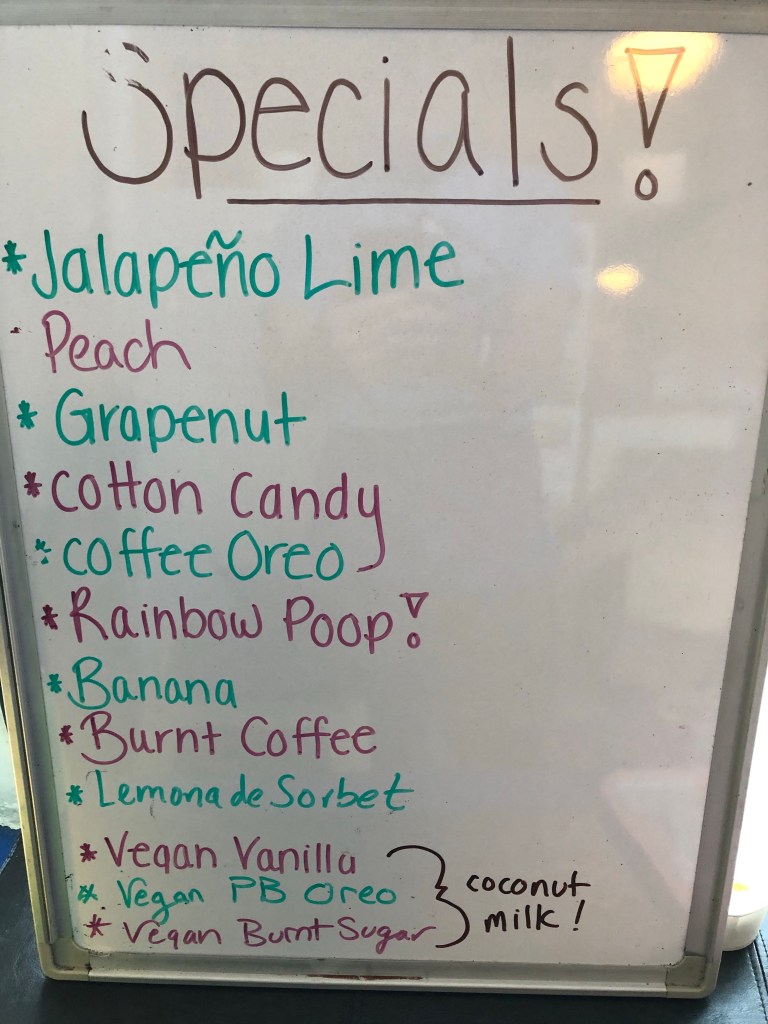 Specials!
* Jalapeño Lime
Peach
* Grapenut
* Cotton Candy
* Coffee Oreo
* Rainbow Poop!
* Banana
* Burnt Coffee
* Lemonade Sorbet
* Vegan Vanilla
* Vegan PB Oreo
* Vegan Burnt Sugar
coconut
milk!